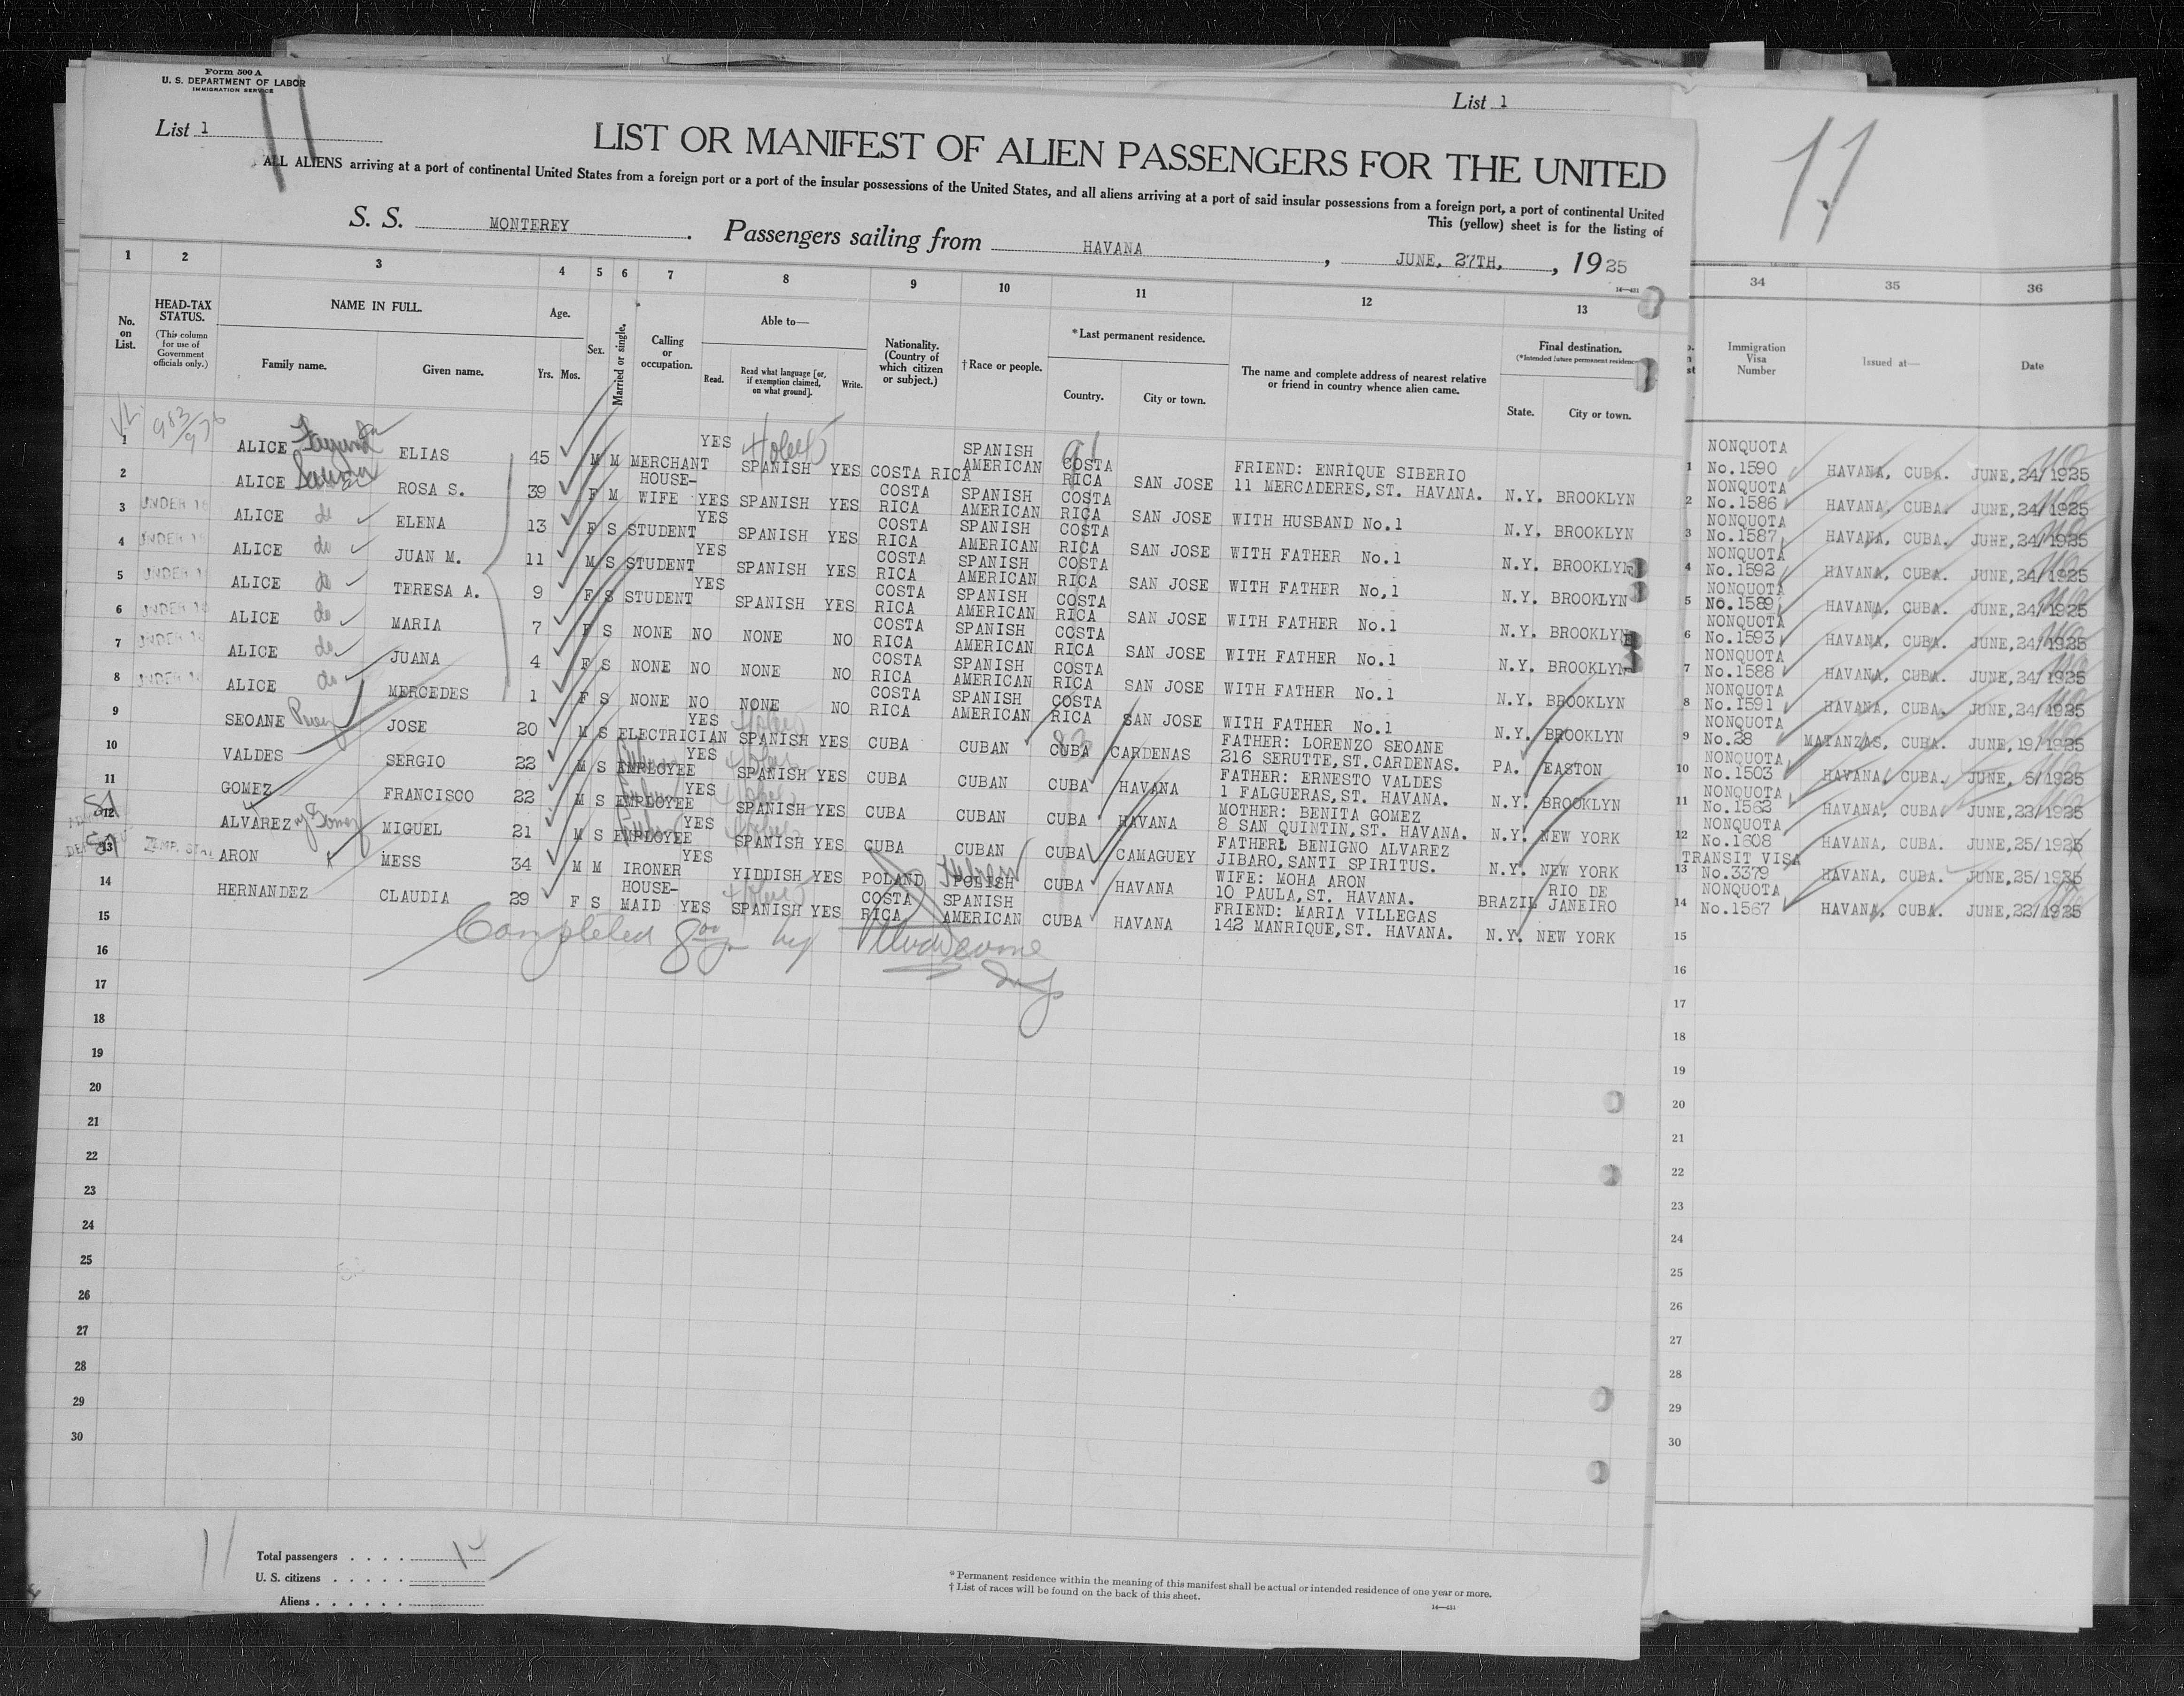 Form 500 A
U. S. DEPARTMENT OF LABOR
IMMIGRATION SERVICE
List 1
List 1
11
11
LIST OR MANIFEST OF ALIEN PASSENGERS FOR THE UNITED
ALL ALIENS arriving at a port of continental United States from a foreign port or a port of the insular possessions of the United States, and all aliens arriving at a port of said insular possessions from a foreign port, a port of continental United
This (yellow) sheet is for the listing of
S. S. MONTEREY. Passengers sailing from HAVANA, JUNE, 27TH, , 1925
14—431
1 2 3 4 5 6 7 8 9 10 11 12 13 34 35 36
No. on List.
HEAD-TAX STATUS.
(This column for use of Government officials only.)
NAME IN FULL.
Family name. Given name.
Age.
Yrs. Mos.
Sex.
Married or single.
Calling or occupation.
Able to—
Read. Read what language [or, if exemption claimed, on what ground]. Write.
Nationality. (Country of which citizen or subject.)
†Race or people.
*Last permanent residence.
Country. City or town.
The name and complete address of nearest relative or friend in country whence alien came.
Final destination.
(*Intended future permanent residence
State. City or town.
Immigration Visa Number
Issued at—
Date
1 ALICE ELIAS 45 M M MERCHANT YES SPANISH YES COSTA RICA SPANISH AMERICAN COSTA RICA SAN JOSE FRIEND: ENRIQUE SIBERIO 11 MERCADERES,ST. HAVANA. N.Y. BROOKLYN 1 NONQUOTA No.1590 HAVANA, CUBA. JUNE,24/1925
2 ALICE ROSA S. 39 F M HOUSE-WIFE YES SPANISH YES COSTA RICA SPANISH AMERICAN COSTA RICA SAN JOSE WITH HUSBAND No.1 N.Y. BROOKLYN 2 NONQUOTA No.1586 HAVANA, CUBA. JUNE,24/1925
3 UNDER 16 ALICE do ELENA 13 F S STUDENT YES SPANISH YES COSTA RICA SPANISH AMERICAN COSTA RICA SAN JOSE WITH FATHER No.1 N.Y. BROOKLYN 3 NONQUOTA No.1587 HAVANA, CUBA. JUNE,24/1925
4 UNDER 16 ALICE do JUAN M. 11 M S STUDENT YES SPANISH YES COSTA RICA SPANISH AMERICAN COSTA RICA SAN JOSE WITH FATHER No,1 N.Y. BROOKLYN 4 NONQUOTA No.1592 HAVANA, CUBA. JUNE,24/1925
5 UNDER 16 ALICE do TERESA A. 9 F S STUDENT YES SPANISH YES COSTA RICA SPANISH AMERICAN COSTA RICA SAN JOSE WITH FATHER No.1 N.Y. BROOKLYN 5 NONQUOTA No.1589 HAVANA, CUBA. JUNE,24/1925
6 UNDER 16 ALICE do MARIA 7 F S NONE NO NONE NO COSTA RICA SPANISH AMERICAN COSTA RICA SAN JOSE WITH FATHER No.1 N.Y. BROOKLYN 6 NONQUOTA No.1593 HAVANA, CUBA. JUNE,24/1925
7 UNDER 16 ALICE do JUANA 4 F S NONE NO NONE NO COSTA RICA SPANISH AMERICAN COSTA RICA SAN JOSE WITH FATHER No.1 N.Y. BROOKLYN 7 NONQUOTA No.1588 HAVANA, CUBA. JUNE,24/1925
8 UNDER 16 ALICE do MERCEDES 1 F S NONE NO NONE NO COSTA RICA SPANISH AMERICAN COSTA RICA SAN JOSE WITH FATHER No.1 N.Y. BROOKLYN 8 NONQUOTA No.1591 HAVANA, CUBA. JUNE,24/1925
9 SEOANE JOSE 20 M S ELECTRICIAN YES SPANISH YES CUBA CUBAN CUBA CARDENAS FATHER: LORENZO SEOANE 216 SERUTTE,ST.CARDENAS. PA. EASTON 9 NONQUOTA No.28 MATANZAS, CUBA. JUNE,19/1925
10 VALDES SERGIO 22 M S EMPLOYEE YES SPANISH YES CUBA CUBAN CUBA HAVANA FATHER: ERNESTO VALDES 1 FALGUERAS,ST. HAVANA. N.Y. BROOKLYN 10 NONQUOTA No.1503 HAVANA, CUBA. JUNE, 5/1925
11 GOMEZ FRANCISCO 22 M S EMPLOYEE YES SPANISH YES CUBA CUBAN CUBA HAVANA MOTHER: BENITA GOMEZ 8 SAN QUINTIN,ST. HAVANA. N.Y. NEW YORK 11 NONQUOTA No.1562 HAVANA, CUBA JUNE,23/1925
12 ALVAREZ y Gomez MIGUEL 21 M S EMPLOYEE YES SPANISH YES CUBA CUBAN CUBA CAMAGUEY FATHER: BENIGNO ALVAREZ JIBARO,SANTI SPIRITUS. N.Y. NEW YORK 12 NONQUOTA No.1608 HAVANA, CUBA. JUNE,25/1925
13 TEMP. ARON MESS 34 M M IRONER YES YIDDISH YES POLAND POLISH Hebrew CUBA HAVANA WIFE: MOHA ARON 10 PAULA,ST. HAVANA. BRAZIL RIO DE JANEIRO 13 TRANSIT VISA No.3379 HAVANA, CUBA. JUNE,25/1925
14 HERNANDEZ CLAUDIA 29 F S HOUSE-MAID YES SPANISH YES COSTA RICA SPANISH AMERICAN CUBA HAVANA FRIEND: MARIA VILLEGAS 142 MANRIQUE,ST. HAVANA. N.Y. NEW YORK 14 NONQUOTA No.1567 HAVANA, CUBA. JUNE,22/1925
15 Completed by 15
16 16
17 17
18 18
19 19
20 20
21 21
22 22
23 23
24 24
25 25
26 26
27 27
28 28
29 29
30 30
11
Total passengers . . . . 14
U. S. citizens . . . . .
Aliens . . . . . .
*Permanent residence within the meaning of this manifest shall be actual or intended residence of one year or more.
†List of races will be found on the back of this sheet.
14—431